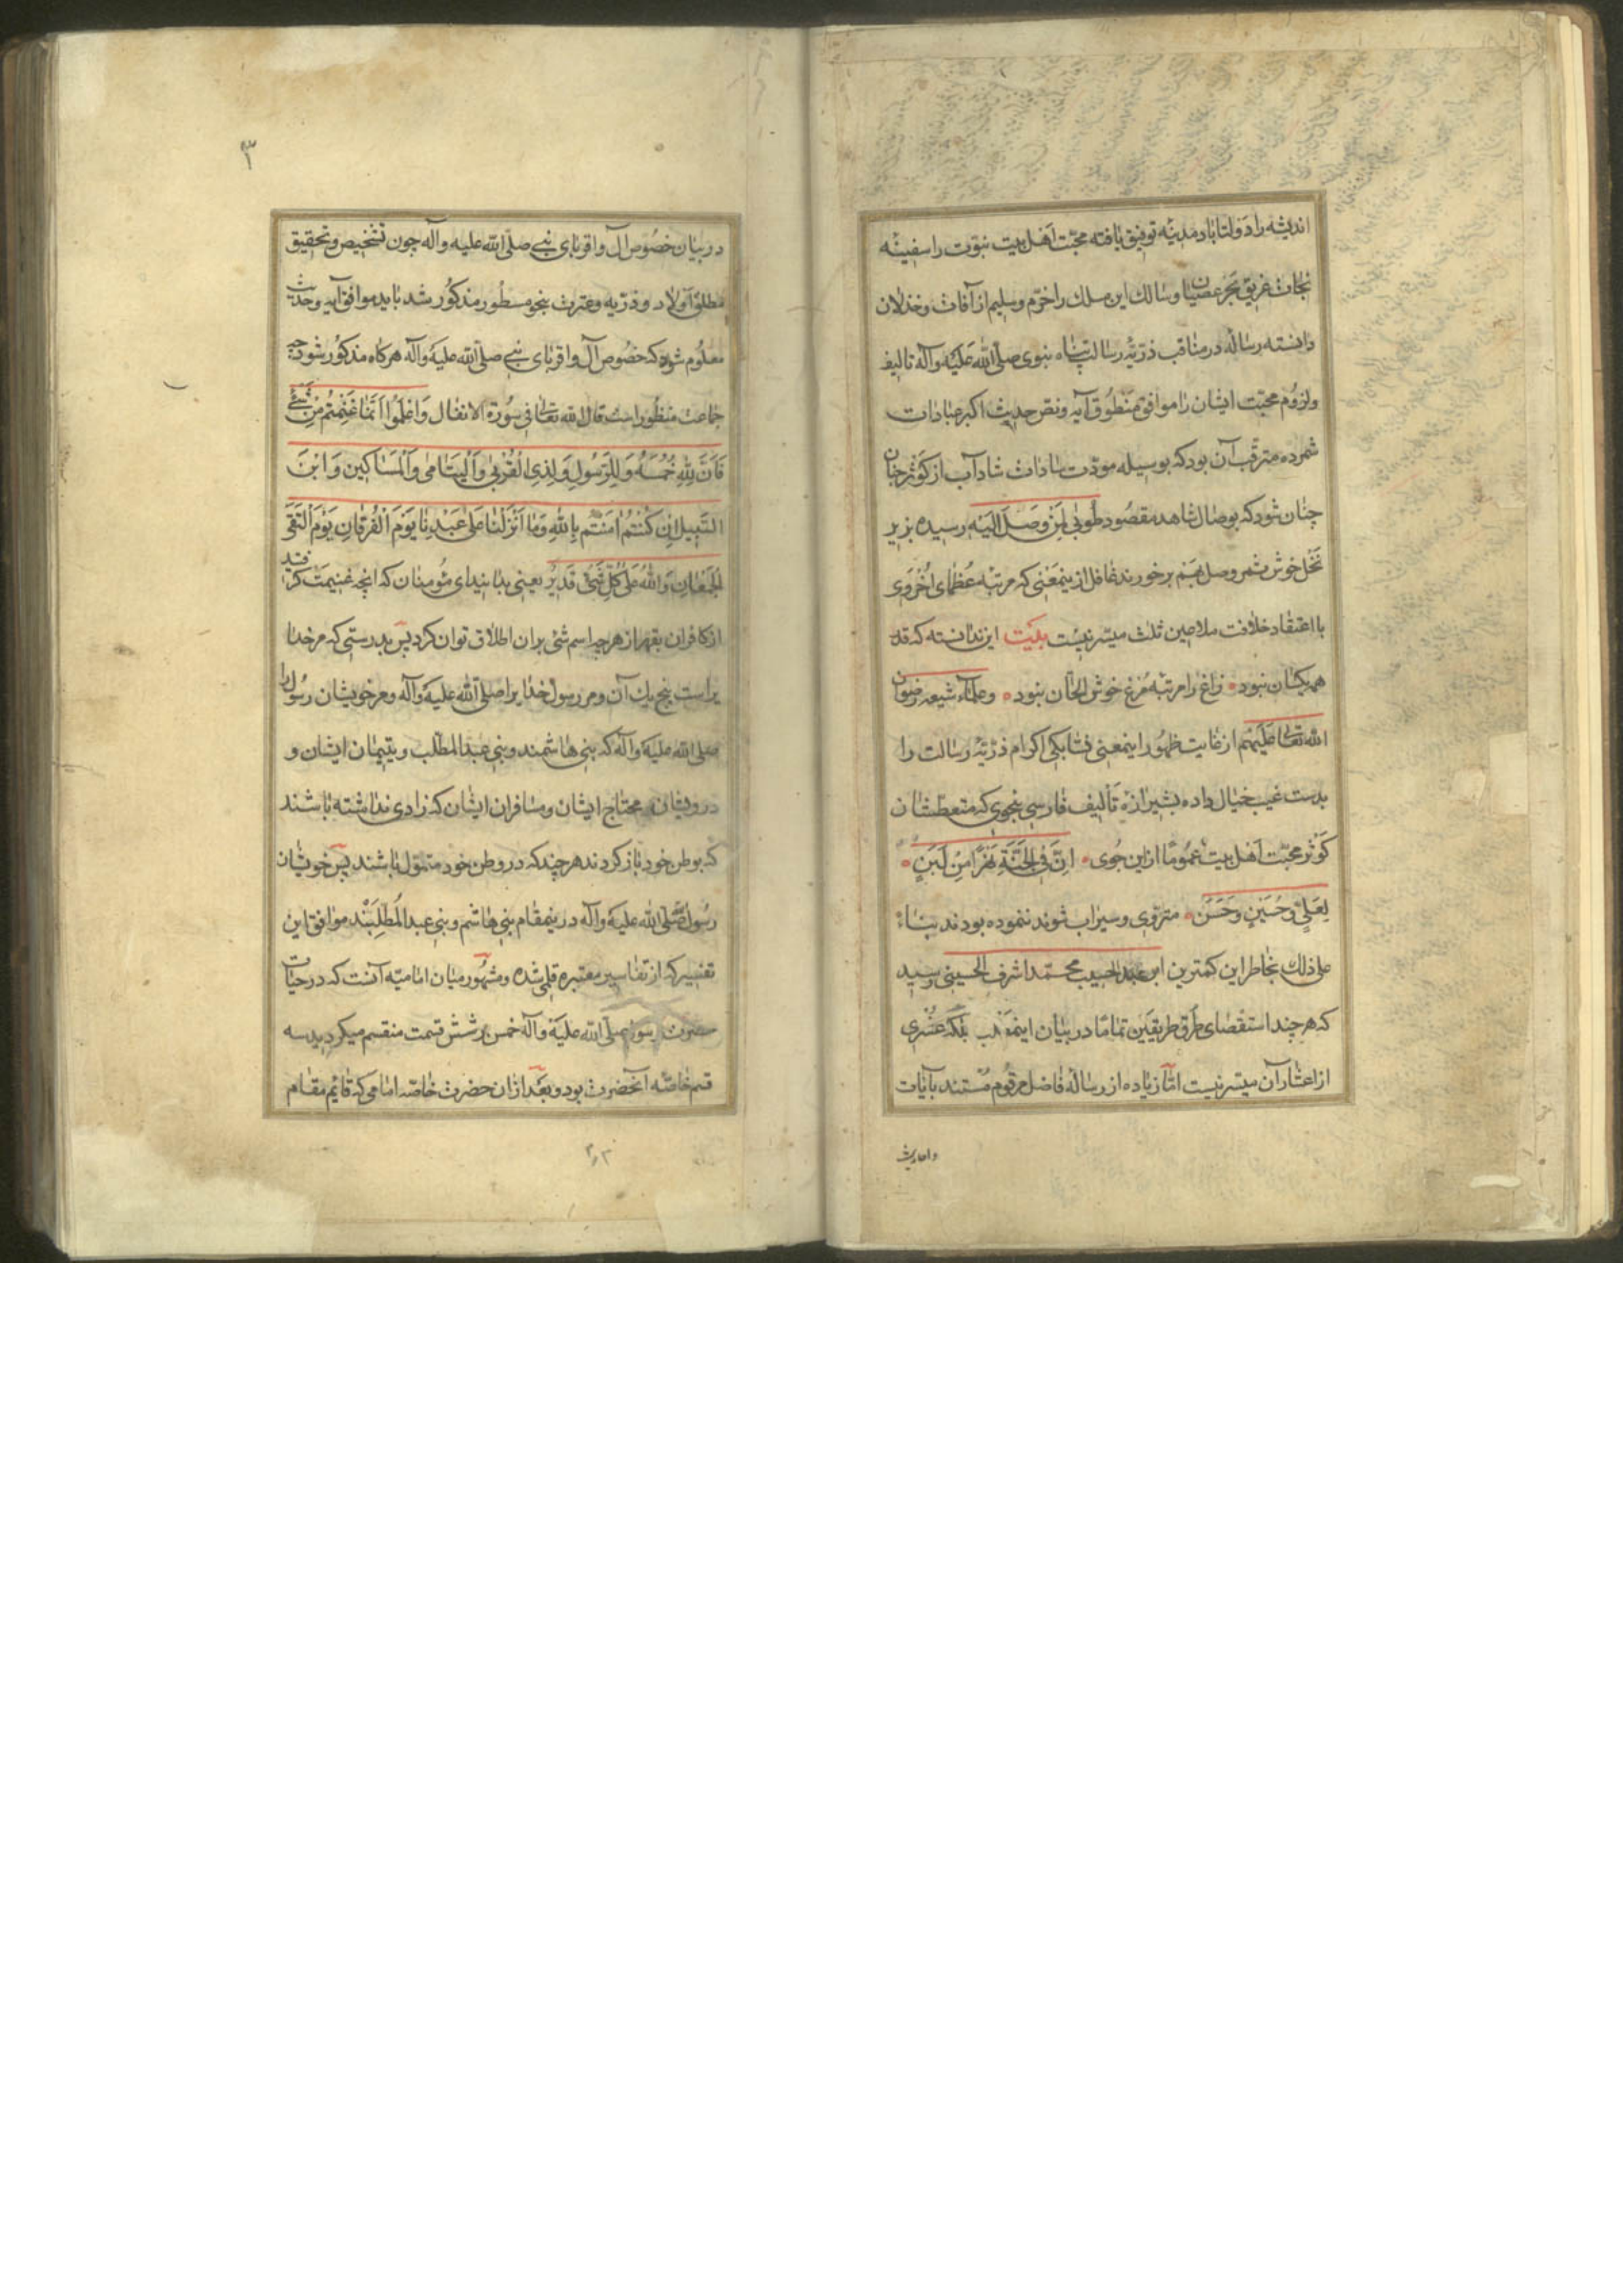 اندیشه را دولتاباد مدینه توفیق یافته محبّت اهل بیت نبوّت را سفینه
نجات غریق بحر عصیان و سالك این مسلك را خرّم و سلیم از آفات و خذلان
دانسته رساله در مناقب ذرّیّه رسالت پناه نبوی صلّی الله علیه وآله تالیف
ولزوم محبّت ایشان را موافق منطوق آیه ونصّ حدیث اکبر عبادات
شمرده مترقّب آن بود که بوسیله مودّت سادات شاداب از کوثر جنان
چنان شود که بوصال شاهد مقصود طوبی لمن وصل الیه رسیده بزیر
نخل خوش ثمر وصل بهم برخورند غافل ازینمعنی که مرتبه عظمای اخروی
با اعتقاد خلافت ملاعین ثلث میسّر نیست بیت این ندانسته که قد
همه یکسان نبود زاغ را مرتبه مرغ خوش الحان نبود وعلماء شیعه رضوان
الله تعالی علیهم از غایت ظهور اینمعنی اکرام ذرّیّه رسالت را
بدست غیب خیال داده بشیرازه تألیف فارسی بنحوی که متعطّشان
کوثر محبّت اهل بیت عموما ازین جوی انّ فی الجنّة نهرا من لبن
لعلیّ وحسین وحسن متروّی وسیراب شوند ننموده بودند بناء
علی ذلك بخاطر این کمترین ابن عبد الحسیب محمّد اشرف الحسینی رسید
که هر چند استقصای طرق طریقین تماما در بیان اینمطلب بلکه عشری
از اعشار آن میسّر نیست امّا زیاده از رساله فاضل مرقوم مستند بآیات
واحادیث
۳
در بیان خصوص آل و اقربای نبی صلّی الله علیه وآله چون تشخیص وتحقیق
مطلق اولاد و ذرّیه وعترت بنحو مسطور مذکور شد باید موافق آیه وحدیث
معلوم شود که خصوص آل و اقربای نبی صلّی الله علیه وآله هر کاه مذکور شود چه
جماعت منظور است قال الله تعالی فی سورة الانفال وَاعْلَمُوا اَنَّمَا غَنِمْتُم مِّن شَیْءٍ
فَاَنَّ لِلّٰهِ خُمُسَهُ وَلِلرَّسُولِ وَلِذِی الْقُرْبٰی وَالْیَتَامٰی وَالْمَسَاکِینِ وَابْنِ
السَّبِیلِ اِن کُنْتُمْ اٰمَنْتُم بِاللّٰهِ وَمَا اَنْزَلْنَا عَلٰی عَبْدِنَا یَوْمَ الْفُرْقَانِ یَوْمَ الْتَقَی
الْجَمْعَانِ وَاللّٰهُ عَلٰی کُلِّ شَیْءٍ قَدِیرٌ یعنی بدانید ای مؤمنان که انچه غنیمت کرفتید
از کافران بقهر از هر چه اسم شیء بران اطلاق توان کرد پس بدرستی که مر خدا
یراست پنج یك آن ومر رسول خدایرا صلّی الله علیه وآله ومر خویشان رسول را
صلی الله علیه وآله که بنی هاشمند وبنی عبد المطّلب ویتیمان ایشان و
درویشان محتاج ایشان ومسافران ایشان که زادی نداشته باشند
که بوطن خود باز کردند هر چند که در وطن خود متموّل باشند پس خویشان
رسول صلّی الله علیه وآله درینمقام بنی هاشم وبنی عبد المطّلبند موافق این
تفسیر که از تفاسیر معتبره قلمی شده ومشهور میان امامیّه آنست که در حیات
حضرت رسول صلّی الله علیه وآله خمس بر شش قسمت منقسم میکردید سه
قسم خاصّه آنحضرت بود وبعد ازان حضرت خاصّه امامی که قائم مقام